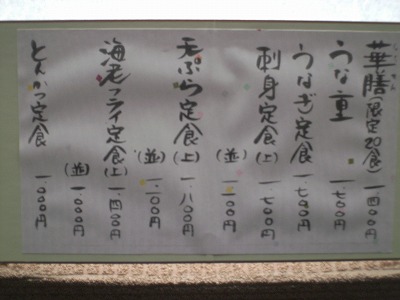 華膳(限定20食) 一四〇〇円
うな重 一七〇〇円
うなぎ定食 一七〇〇円
刺身定食(上) 一七〇〇円
(並) 一一〇〇円
天ぷら定食(上) 一八〇〇円
(並) 一一〇〇円
海老フライ定食(上) 一四〇〇円
(並) 一〇〇〇円
とんかつ定食 一〇〇〇円